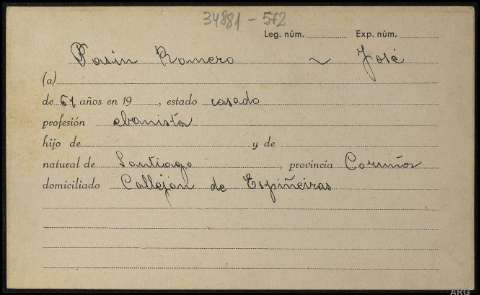 34881-572
Leg. núm. Exp. núm.
Pasin Romero ~ José
(a)
de 61 años en 19 , estado casado
profesión ebanista
hijo de y de
natural de Santiago , provincia Coruña
domiciliado Callejón de Espiñeiras
ARG